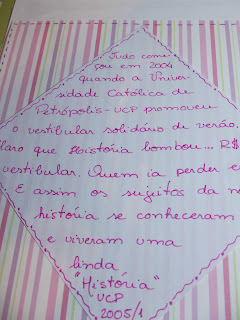 Tudo come
çou em 2004
quando a Univer-
sidade Católica de
Petrópolis-UCP promoveu
o vestibular solidário de verão.
claro que História bombou... R$
vestibular. Quem ia perder e
E assim os sujeitos da n
história se conheceram
e viveram uma
linda
"História"
UCP
2005/1